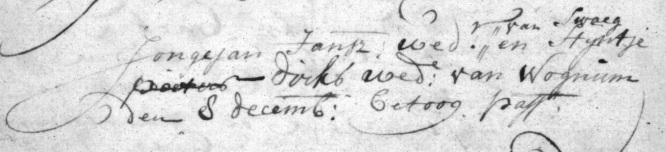 Jongejan Jansz: wed:r van Swaeg en Stijntje
Dirks wed:e van Wognum
den 8 decemb: betoog pass: